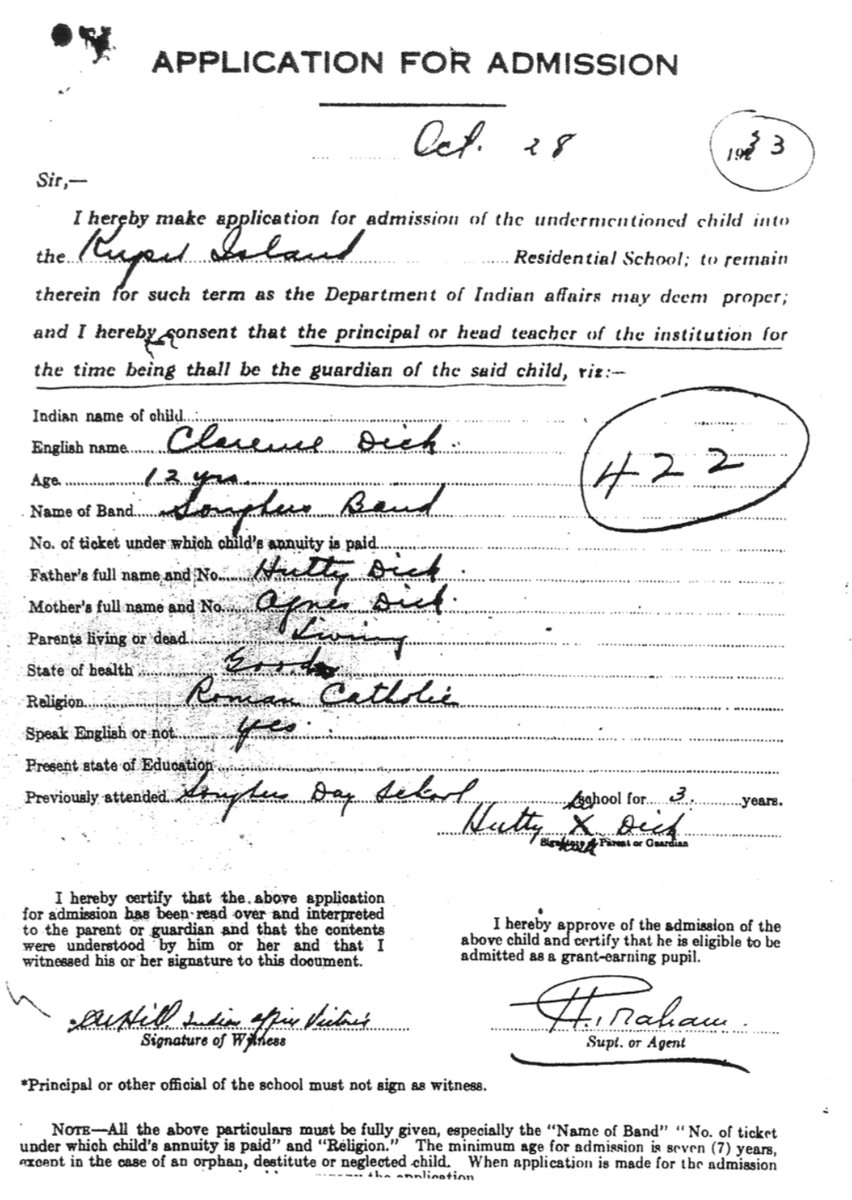 APPLICATION FOR ADMISSION
Oct. 28 1933
Sir,—
I hereby make application for admission of the undermentioned child into
the Kuper Island Residential School; to remain
therein for such term as the Department of Indian affairs may deem proper;
and I hereby consent that the principal or head teacher of the institution for
the time being shall be the guardian of the said child, viz:—
Indian name of child
English name Clarence Dick.
422
Age 12 yrs.
Name of Band Songhees Band
No. of ticket under which child's annuity is paid
Father's full name and No. Hutty Dick.
Mother's full name and No. Agnes Dick.
Parents living or dead Living
State of health Good
Religion Roman Catholic
Speak English or not yes.
Present state of Education
Previously attended Songhees Day School School for 3. years.
Hutty X Dick
Signature of Parent or Guardian
I hereby certify that the above application
for admission has been read over and interpreted
to the parent or guardian and that the contents
were understood by him or her and that I
witnessed his or her signature to this document.
I hereby approve of the admission of the
above child and certify that he is eligible to be
admitted as a grant-earning pupil.
Hill Indian office Victoria
Signature of Witness
H. Graham.
Supt. or Agent
*Principal or other official of the school must not sign as witness.
NOTE—All the above particulars must be fully given, especially the "Name of Band" "No. of ticket
under which child's annuity is paid" and "Religion." The minimum age for admission is seven (7) years,
except in the case of an orphan, destitute or neglected child. When application is made for the admission
the application